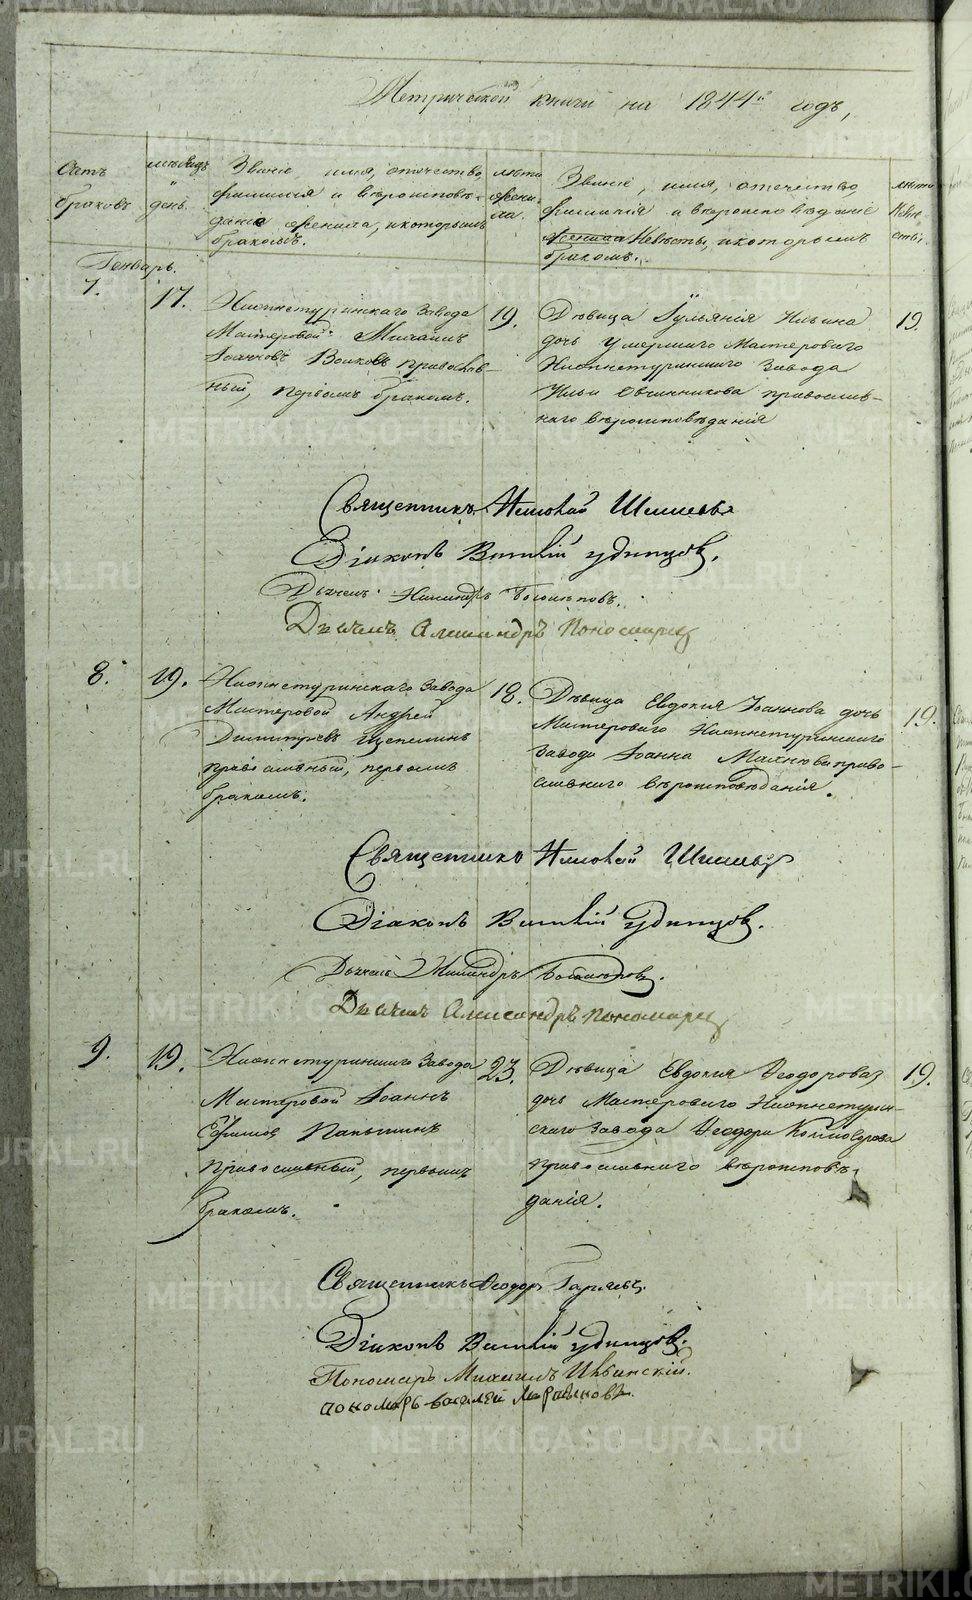 Метрической книги на 1844й годъ,
Счетъ браковъ
мѣсяцъ и день.
Званіе, имя, отечество, фамилія и вѣроисповѣданіе жениха, и которымъ бракомъ.
лѣта жениха.
Званіе, имя, отечество, фамилія и вѣроисповѣданіе невѣсты, и которымъ бракомъ.
лѣта невѣсты,
Генварь.
7.
17.
Нижнетуринскаго завода
Мастеровой Михаилъ
Іоанновъ Волковъ православ-
ный, первымъ бракомъ.
19.
Дѣвица Іульянія Ильина
дочь умершаго Мастероваго
Нижнетуринскаго завода
Ильи Овчинникова православ-
наго вѣроисповѣданія
19.
Священникъ Николай
Діаконъ Василій Удинцов.
Дьячекъ
Дьячекъ Александръ Пономарев
8.
19.
Нижнетуринскаго завода
Мастеровой Андрей
Димитріевъ Щепелинъ
православный, первымъ
бракомъ.
18.
Дѣвица Евдокия Іоаннова дочь
Мастероваго Нижнетуринскаго
завода Іоанна право-
славнаго вѣроисповѣданія.
19.
Священникъ Николай
Діаконъ Василій Удинцов.
Дьячекъ
Дьячекъ Александръ Пономарев
9.
19.
Нижнетуринскаго Завода
Мастеровой Іоаннъ
Ефимов Паньшинъ
православный, первымъ
бракомъ.
23.
Дѣвица Евдокия Ѳеодорова
дочь Мастероваго Нижнетурин-
скаго Завода Ѳеодора
православнаго вѣроисповѣ-
данія.
19.
Священникъ Ѳеодоръ Гаряевъ.
Діаконъ Василій Удинцов.
Пономарь Михаилъ Ильинскій.
пономарь василей